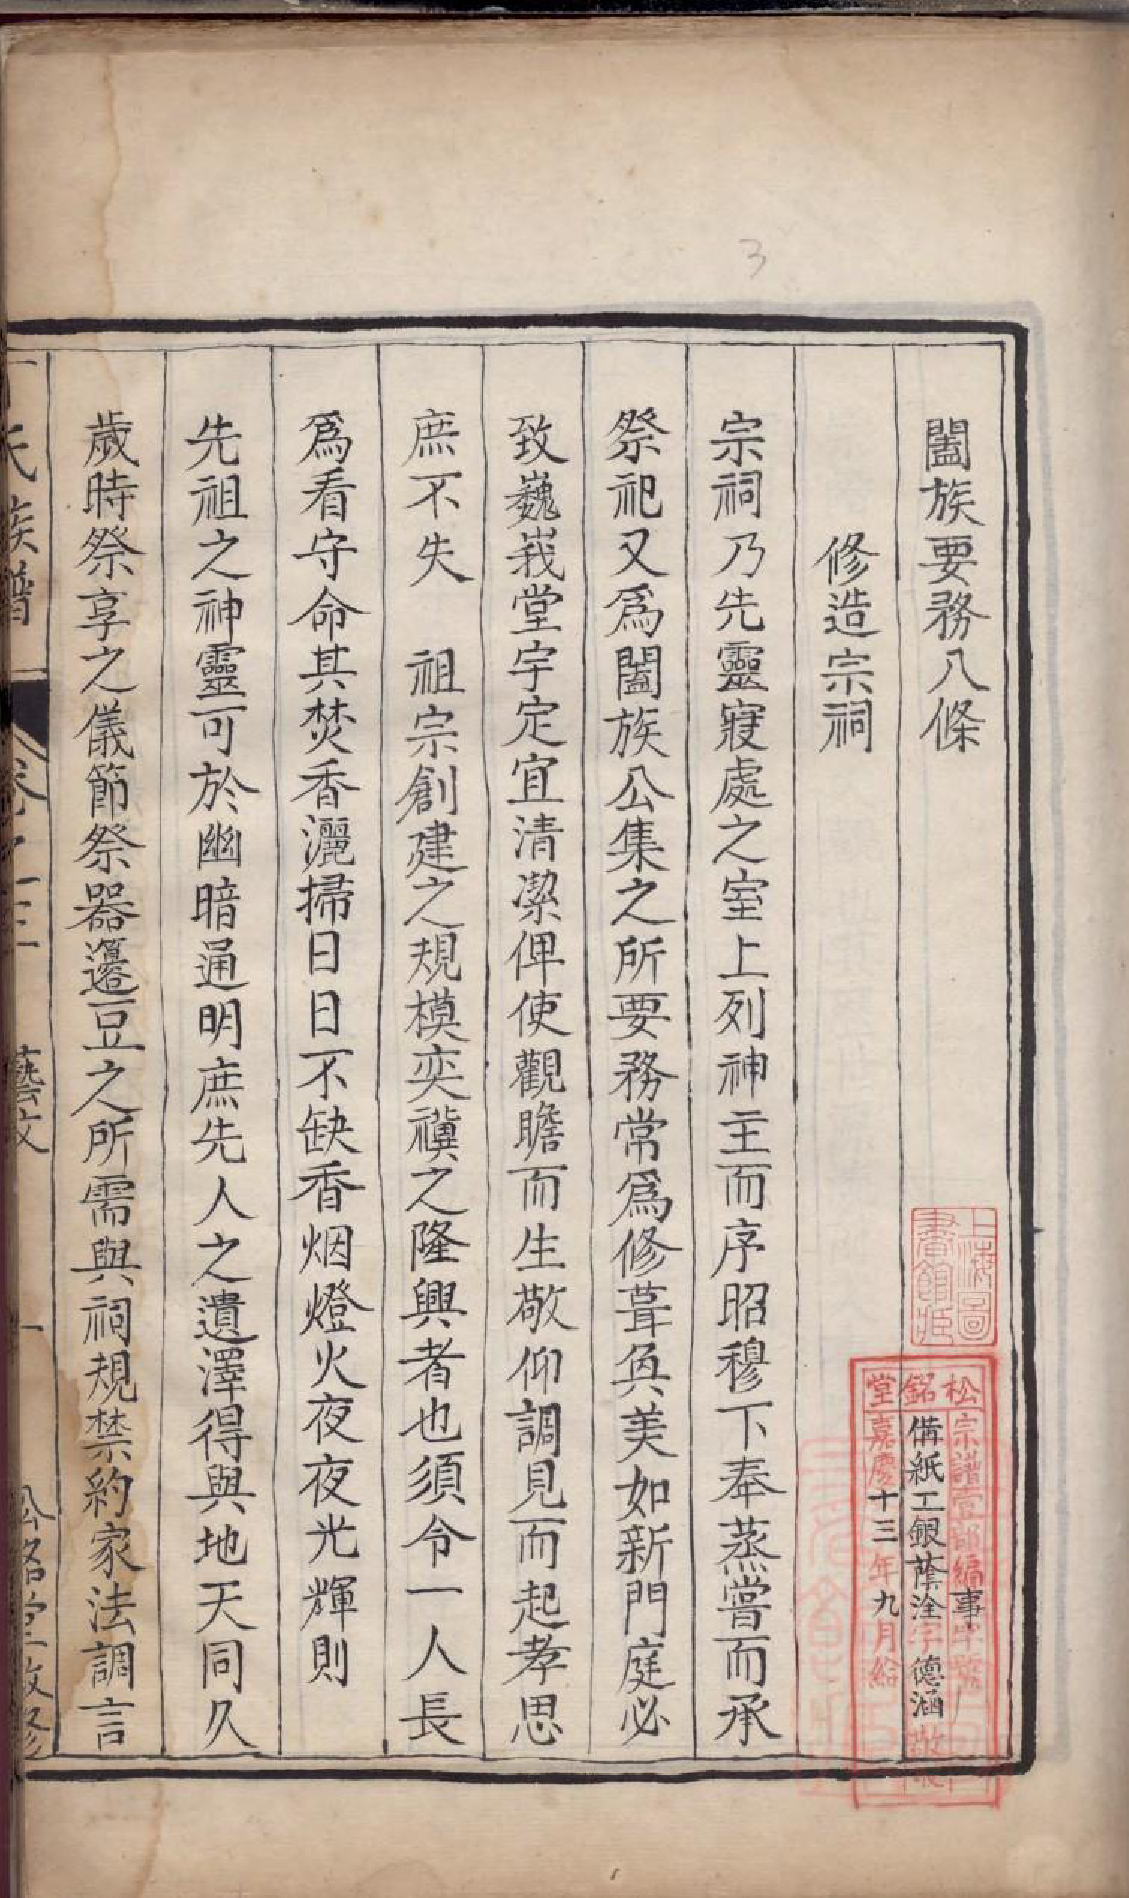 闔族要務八條
修造宗祠
宗祠乃先靈寢處之室上列神主而序昭穆下奉蒸嘗而承
祭祀又爲闔族公集之所要務常爲修葺奐美如新門庭必
致巍峩堂宇定宜清潔俾使觀瞻而生敬仰調見而起孝思
庶不失　祖宗創建之規模奕禩之隆興者也須令一人長
爲看守命其焚香灑掃日日不缺香烟燈火夜夜光輝則
先祖之神靈可於幽暗通明庶先人之遺澤得與地天同久
歲時祭享之儀節祭器籩豆之所需與祠規禁約家法調言
氏族譜
藝文
一
松銘堂敬修
上海圖
書館藏
松銘堂
宗譜壹部編事字號
備紙工銀蔭淦字德涵敬
嘉慶十三年九月給
3